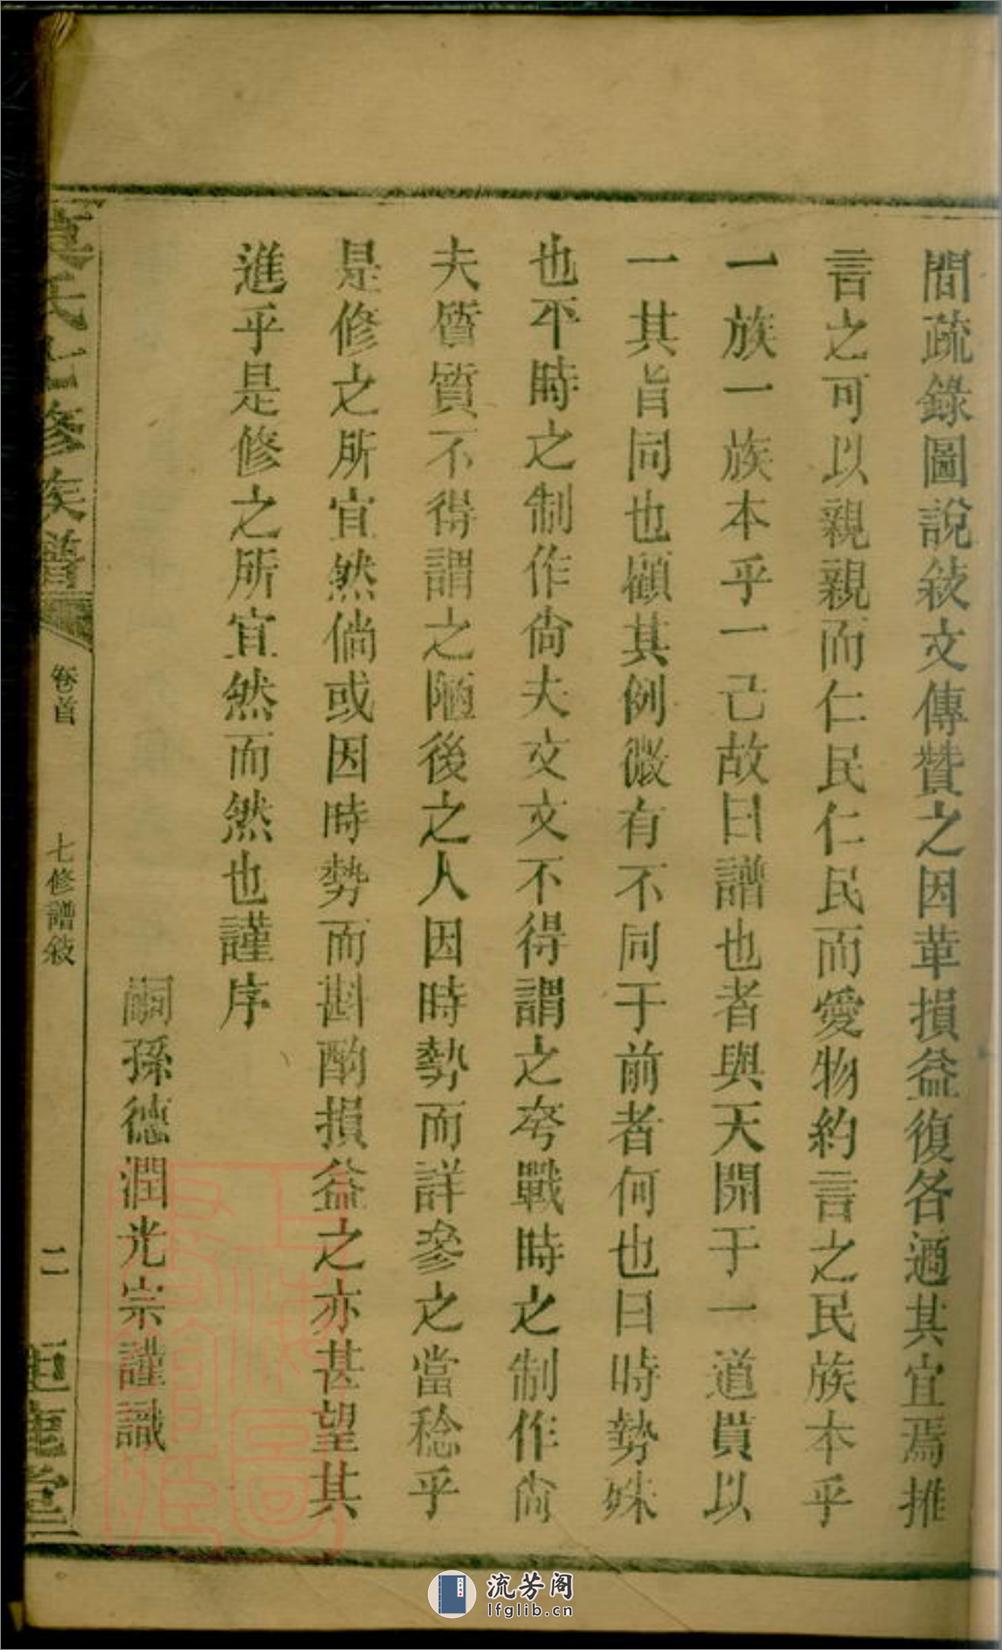 間疏錄圖說敍文傳贊之因革損益復各適其宜焉推
言之可以親親而仁民仁民而愛物約言之民族本乎
一族一族本乎一己故曰譜也者與天開于一道貫以
一其旨同也顧其例微有不同于前者何也曰時勢殊
也平時之制作尙夫文文不得謂之夸戰時之制作尙
夫質質不得謂之陋後之人因時勢而詳參之當稔乎
是修之所宜然倘或因時勢而斟酌損益之亦甚望其
進乎是修之所宜然而然也謹序
嗣孫德潤光宗謹識
莫氏七修族譜
卷首
七修譜敍
二
鉅鹿堂
流芳阁
lfglib.cn